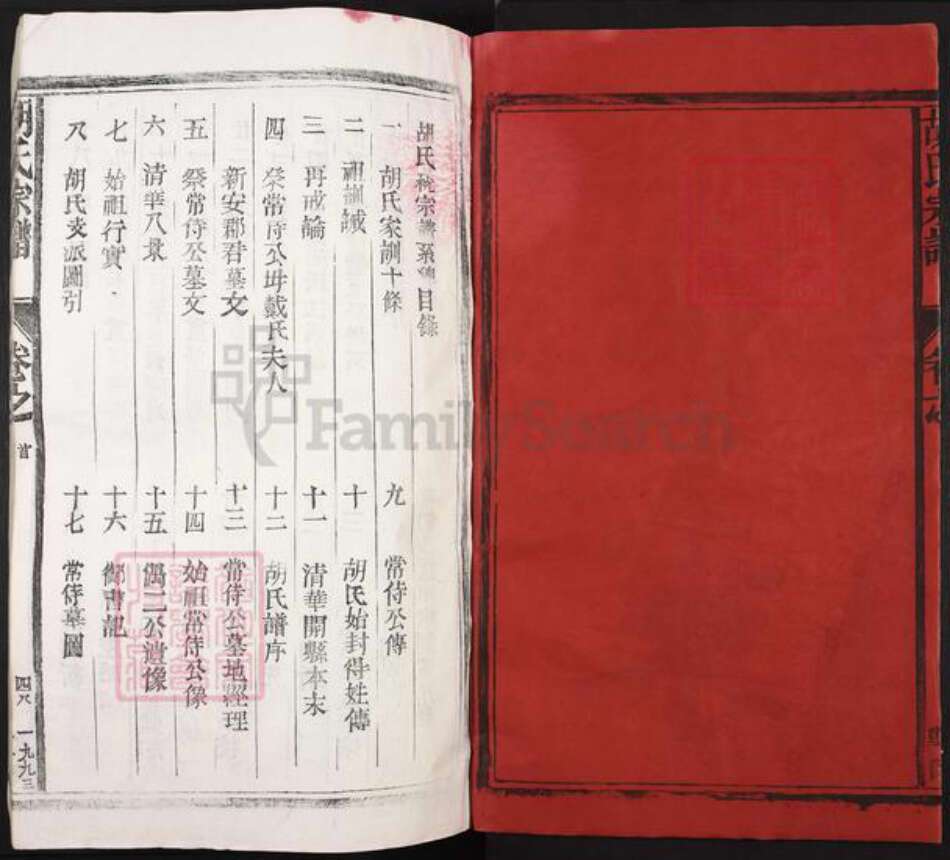 胡氏統宗譜系總目錄
一 胡氏家訓十條
二 祖訓誡
三 再戒論
四 癸常侍公井戴氏夫人
新安郡君墓文
五 祭常侍公墓文
六 清華八景
七 始祖行實
八 胡氏支派圖引
九 常侍公傳
十 胡氏始封得姓傳
十一 清華開縣本末
十二 胡氏譜序
十三 常侍公墓地經理
十四 始祖常侍公像
十五 偶二公遺像
十六 御書記
十七 常侍墓圖
胡氏宗譜
卷之
首
四八
一九九三
胡氏宗譜
卷之
FamilySearch